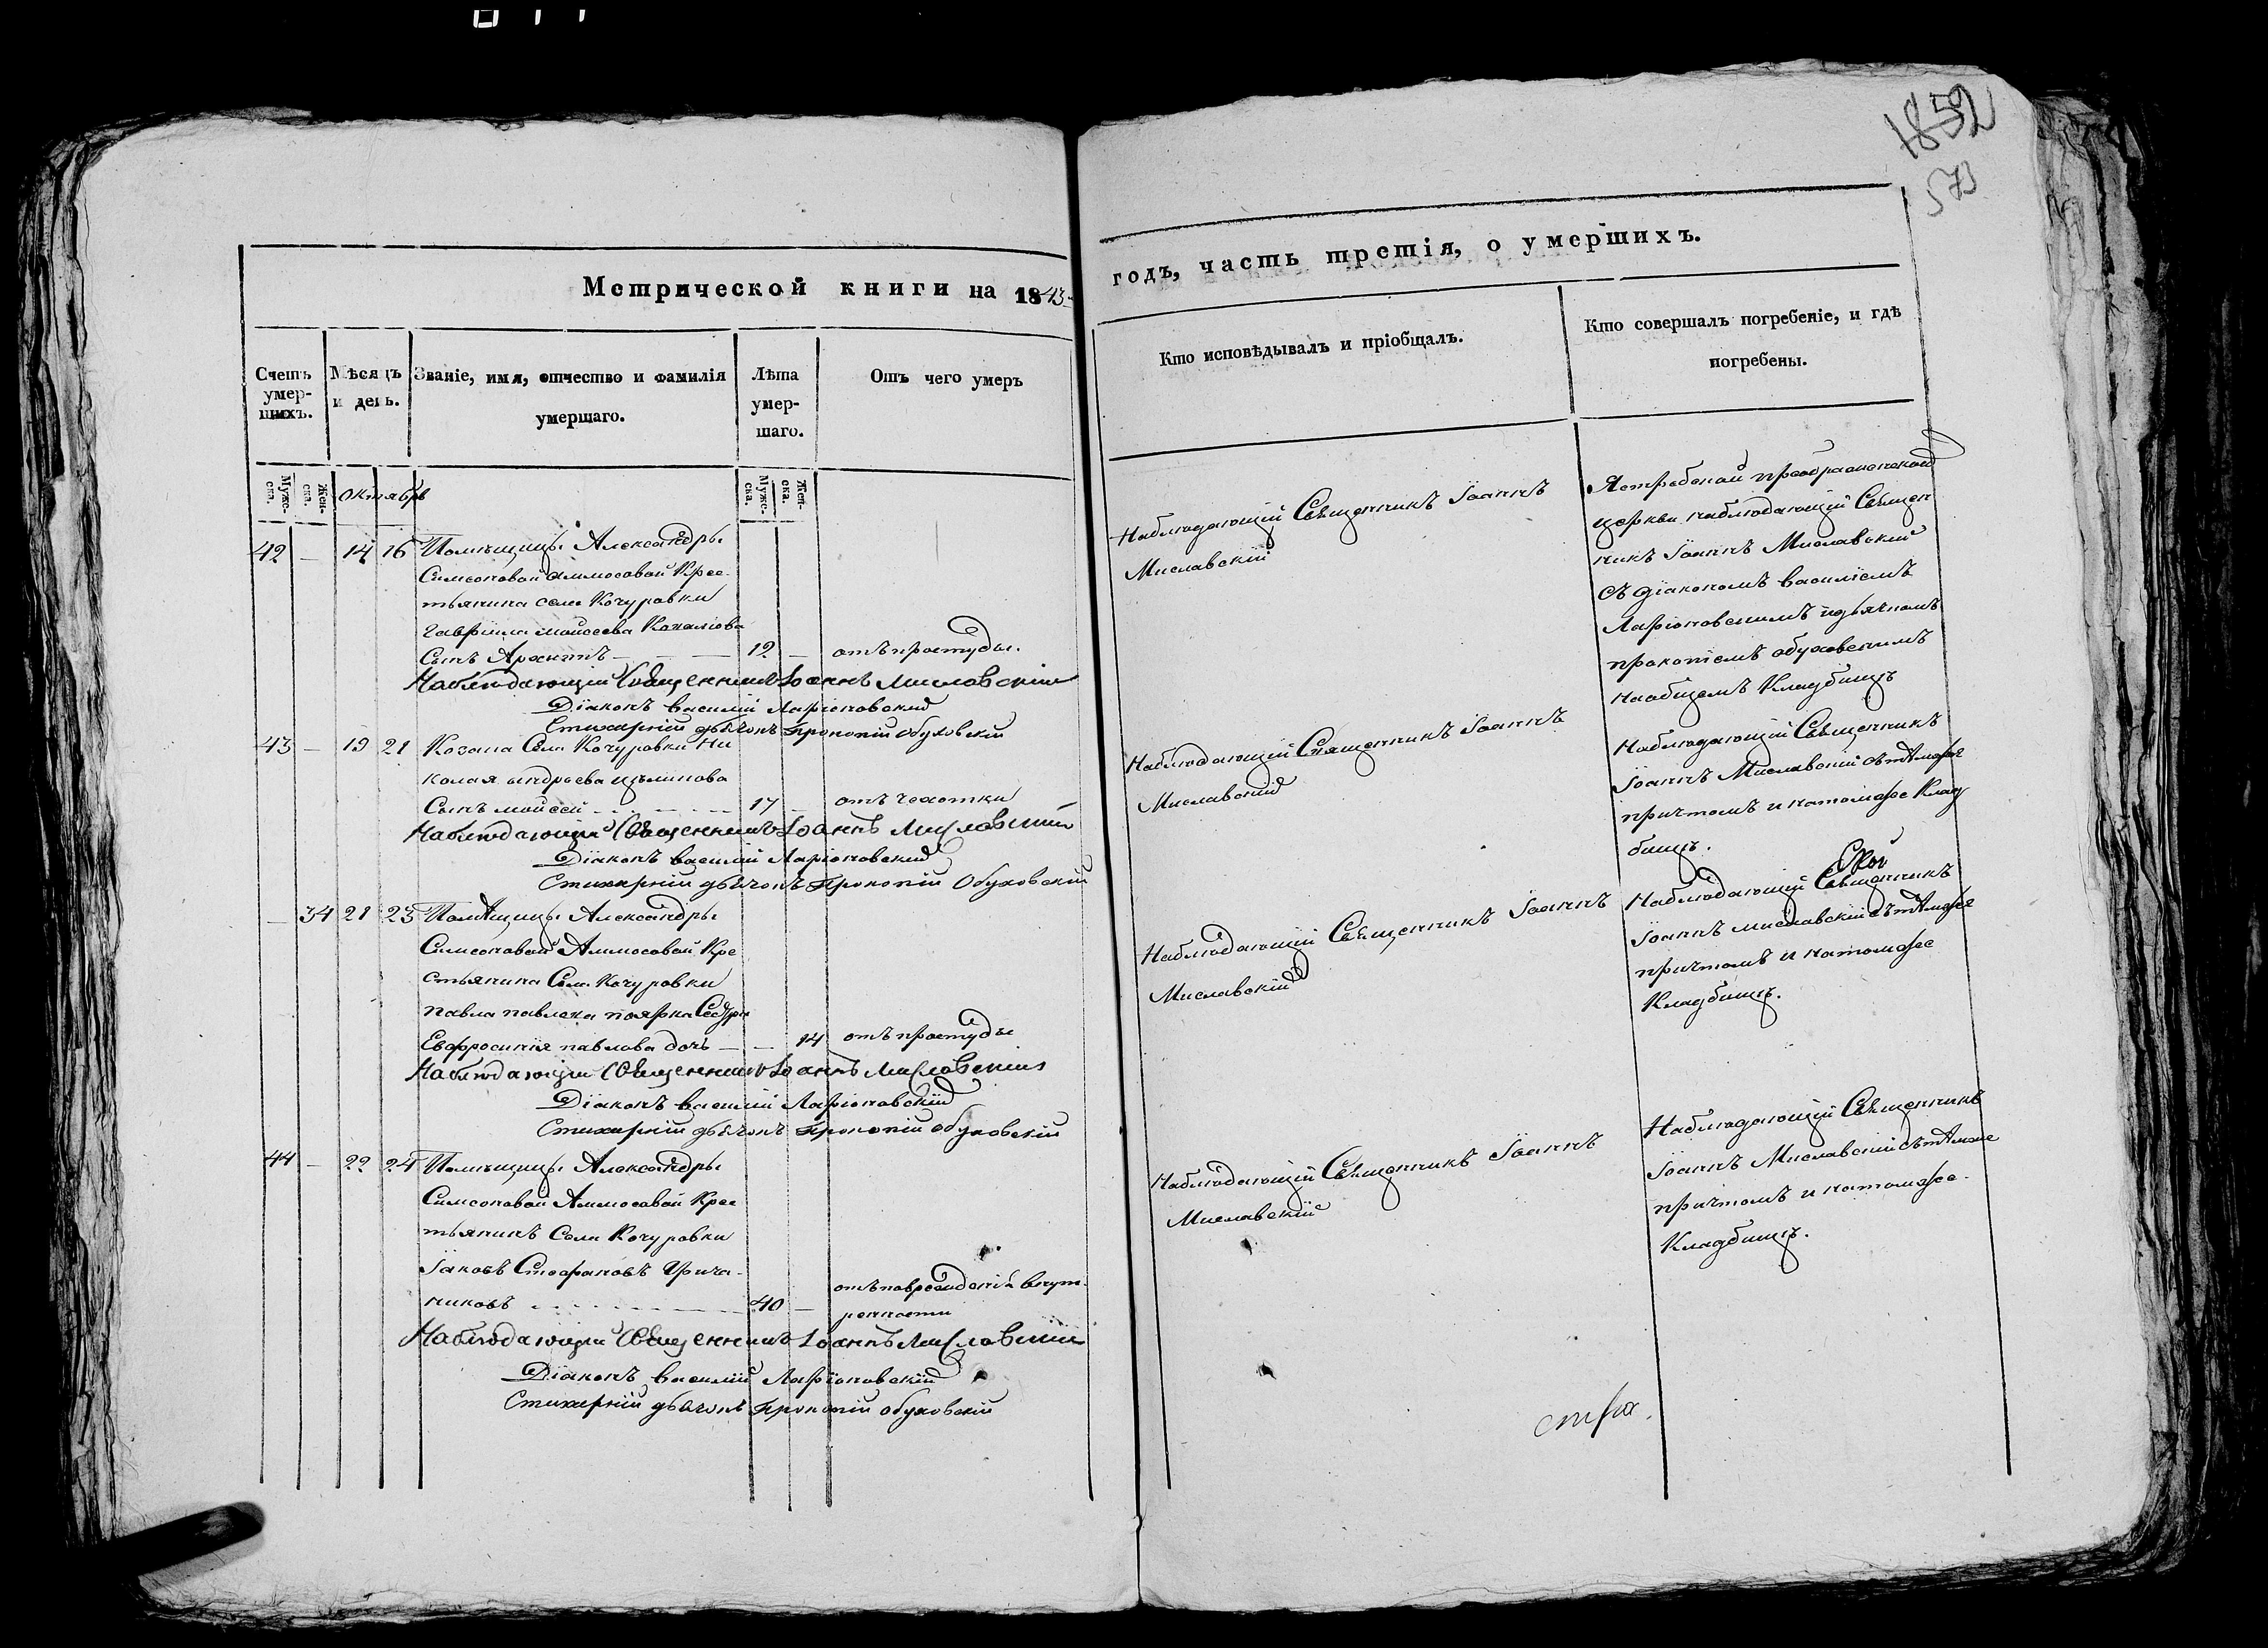 1852
573
Метрической книги на 1843
годъ, часть третія, о умершихъ.
Счетъ умер-шихъ.
Мѣсяцъ и день.
Званіе, имя, отчество и фамилія умершаго.
Лѣта умер-шаго.
Отъ чего умеръ
Кто исповѣдывалъ и пріобщалъ.
Кто совершалъ погребеніе, и гдѣ
погребены.
Мужес-ка. Жен-ска. Октябрь Мужес-ка. Жен-ска.
42 — 14 16 Помѣщицы Александры
Симсоновой Аммосовой Крес-
тьянина села Кочуровки
Гавріила моисеева
Сынъ — 12 — отъ простуды.
Наблюдающій Священникъ Іоаннъ Миславскій
Діаконъ василій Ларіоновскій
Стихарный дьячокъ Прокопій Обуховскій
Наблюдающій Священникъ Іоаннъ
Миславскій
Ястребской преображенской
церкви наблюдающій Священ
никъ Іоаннъ Миславский
съ діакономъ василіемъ
Ларіоновскимъ идьячкомъ
прокопіемъ обуховскимъ
наобщемъ Кладбищѣ
43 — 19 21 Козака Села Кочуровки Ни
колая андреева
Сынъ моисей — 17 — отъ чахотки
Наблюдающій Священникъ Іоаннъ Миславскій
Діаконъ василій Ларіоновский
Стихарный дьячокъ Прокопій Обуховскій
Наблюдающій Священникъ Іоаннъ
Миславский
Наблюдающій Священникъ
Іоаннъ Миславский сътѣмже
причтомъ и натомже Клад
бищѣ.
— 34 21 23 Помѣщицы Александры
Симсоновой Аммосовой Кре
стьянина Села Кочуровки
павла павлова
Евфросинія павлова дочь — — 14 отъ простуды
Наблюдающій Священникъ Іоаннъ Миславскій
Діаконъ василій Ларіоновскій
Стихарный дьячокъ Прокопій обуховскій
Наблюдающій Священникъ Іоаннъ
Миславскій
Наблюдающій Священникъ
Іоаннъ миславскій сътѣмже
причтомъ и натомже
Кладбищѣ.
44 — 22 24 Помѣщицы Александры
Симсоновой Аммосовой Крес
тьянинъ Села Кочуровки
Іаковъ Стефановъ
никовъ — 40 — отъ поврежденія внут-
ренности
Наблюдающій Священникъ Іоаннъ Миславскій
Діаконъ Василій Ларіоновскій
Стихарный дьячокъ Прокопій обуховскій
Наблюдающій Священникъ Іоаннъ
Миславскій
Наблюдающій Священникъ
Іоаннъ Миславскій сътѣмже
причтомъ и натомже
Кладбищѣ.